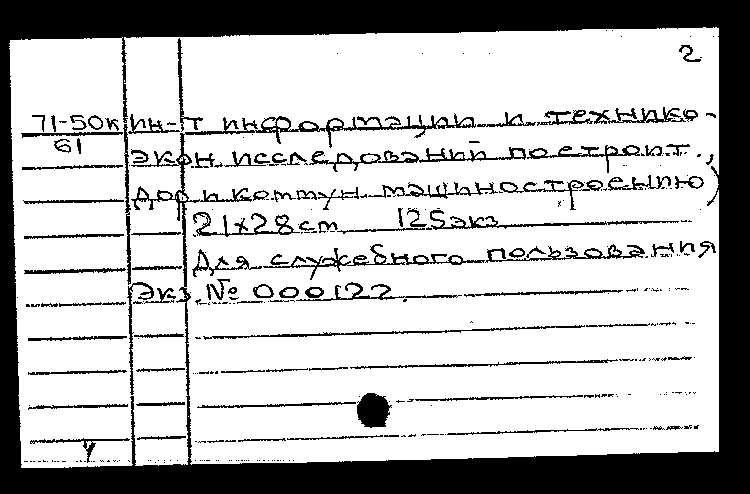 2
71-50к ин-т информации и технико-
61 экон. исследований по строит.,
дор и коммун. машиностроению)
21x28cm 125экз.
Для служебного пользования
Экз. № 000122.